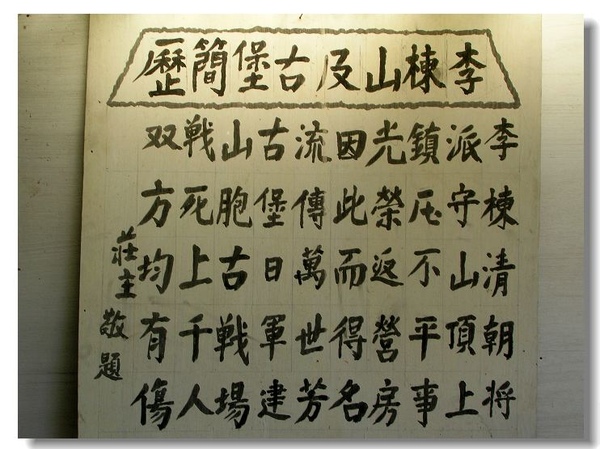 李棟山及古堡簡歷
李棟清朝将
派守山頂上
鎮压不平事
光榮返營房
因此而得名
流傳萬世芳
古堡日軍建
山胞古戦場
戦死上千人
双方均有傷
莊主敬題